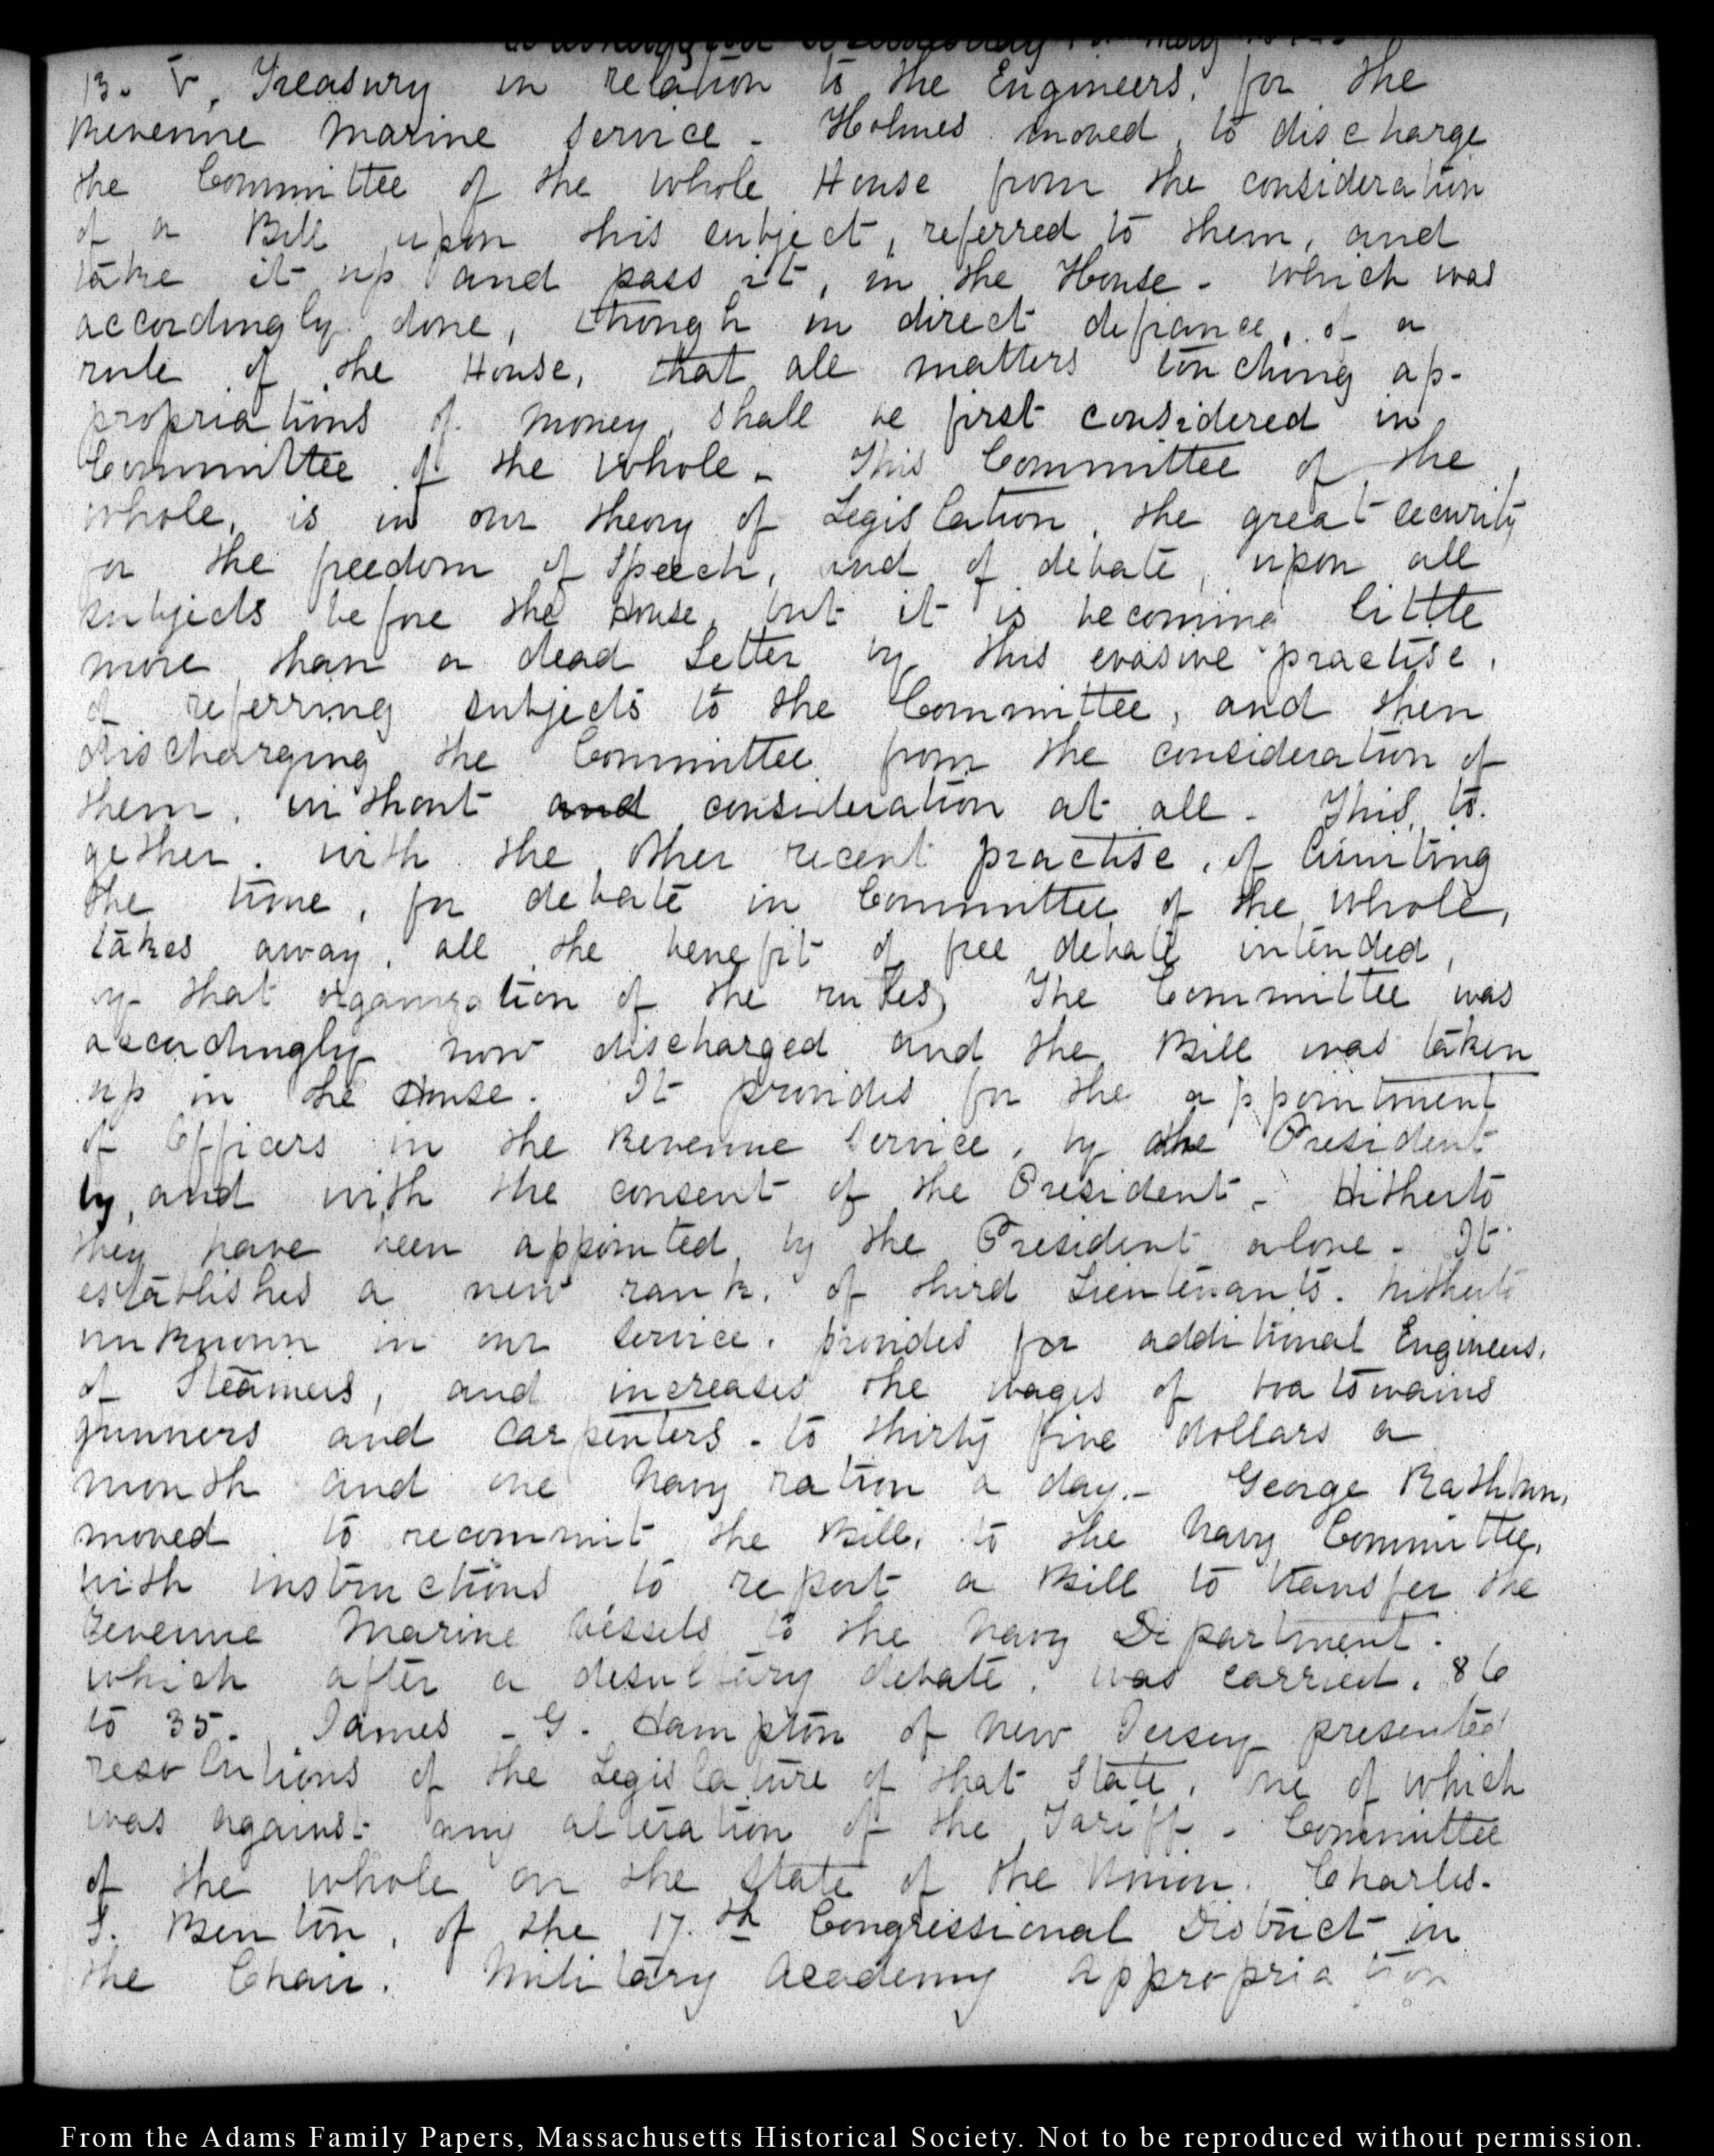 Washington Wednesday 13 May 1846.
13. V. Treasury in relation to the Engineers, for the
Revenue Marine Service - Holmes moved, to discharge
the Committee of the whole House from the consideration
of a Bill upon this subject, referred to them, and
take it up and pass it, in the House - which was
accordingly done, though in direct defiance, of a
rule of the House, that all matters touching ap-
propriations of money, shall be first considered in
Committee of the whole - This Committee of the
whole, is in our theory of Legislation, the great security
for the freedom of Speech, and of debate, upon all
subjects before the House, but it is becoming little
more than a dead Letter by this evasive practise,
of referring subjects to the Committee, and then
discharging the Committee from the consideration of
them, without and consideration at all - This, to-
gether, with the other recent practise, of limiting
the time, for debate in Committee of the whole,
takes away, all the benefit of free debate intended,
by that organization of the rules, The Committee was
accordingly now discharged and the Bill was taken
up in the House. It provides for the appointment
of Officers in the Revenue Service, by the President
by, and with the consent of the President - Hitherto
they have been appointed, by the President alone - It
establishes a new rank, of third Lieutenants, hitherto
unknown in our service, provides for additional Engineers,
of Steamers, and increases the wages of boatswains
gunners and carpenters - to thirty five dollars a
month and one Navy ration a day. - George Rathbun,
moved to recommit the Bill, to the Navy Committee,
with instructions to report a Bill to transfer the
Revenue Marine Vessels to the Navy Department.
which after a desultary debate, was carried, 86
to 35. James - G. Hampton of New Jersey presented
resolutions of the Legislature of that State, one of which
was against any alteration of the Tariff - Committee
of the whole on the State of the Union. Charles-
S. Benton, of the 17.th Congressional District in
the Chair. Military Academy Appropriation
From the Adams Family Papers, Massachusetts Historical Society. Not to be reproduced without permission.